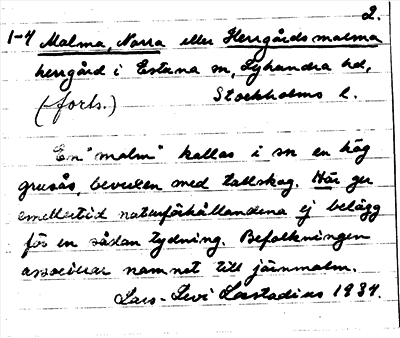 2.
1-4 Malma, Norra eller Herrgårdsmalma
herrgård i Estuna sn, Lyhundra hd,
(forts.) Stockholms l.
En "malm" kallas i sn en hög
grusås, bevuxen med tallskog. Här ger
emellertid naturförhållandena ej belägg
för en sådan tydning. Befolkningen
associerar namnet till järnmalm.
Lars-Levi Læstadius 1934.